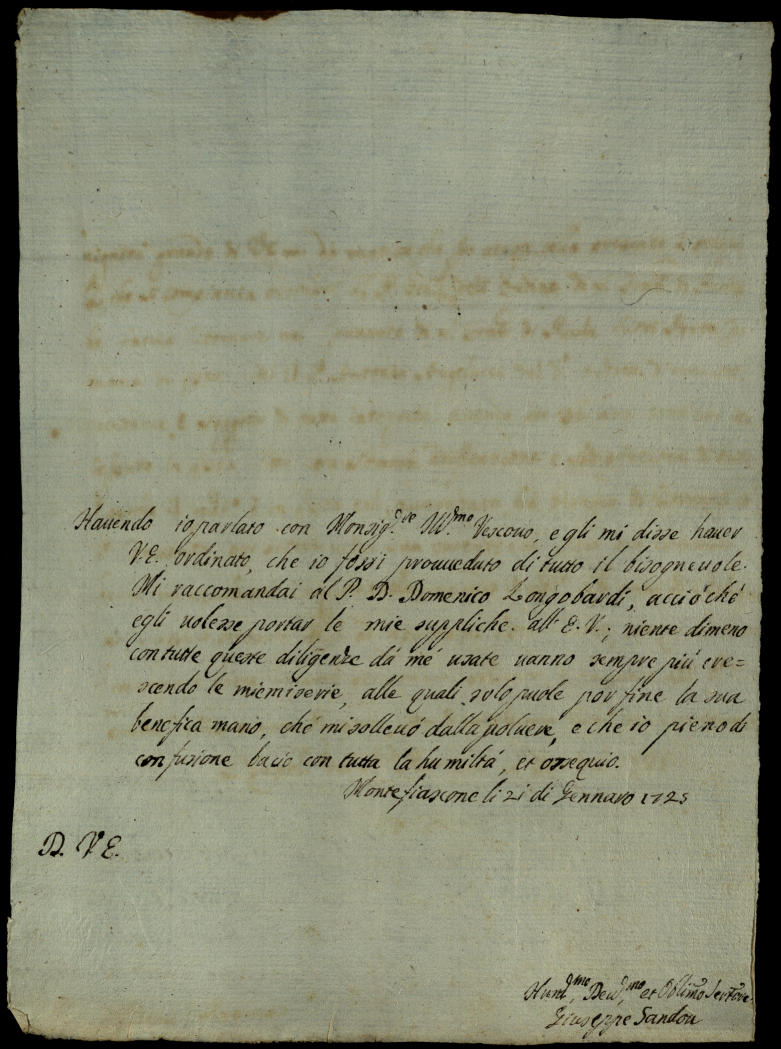 Hauendo io parlato con Monsig.re Ill.mo Vescouo, egli mi disse hauer
V.E. ordinato, che io fossi proueduto di tutto il bisogneuole.
Mi raccomandai al P. D. Domenico Longobardi, acciòché
egli uolesse portar le mie suppliche all' E.V.; niente dimeno
con tutte queste diligenze dà mé usate uanno sempre più cre=
scendo le mie miserie, alle quali solo puole por fine la sua
benefica mano, ché mi solleuò dalla poluere, e che io pieno di
confusione bacio con tutta la humiltà, et ossequio.
Montefiascone li 21 di Gennaro 1725
D. V. E.
Hum.mo Deu.mo et Obl.mo Ser.tore
Giuseppe